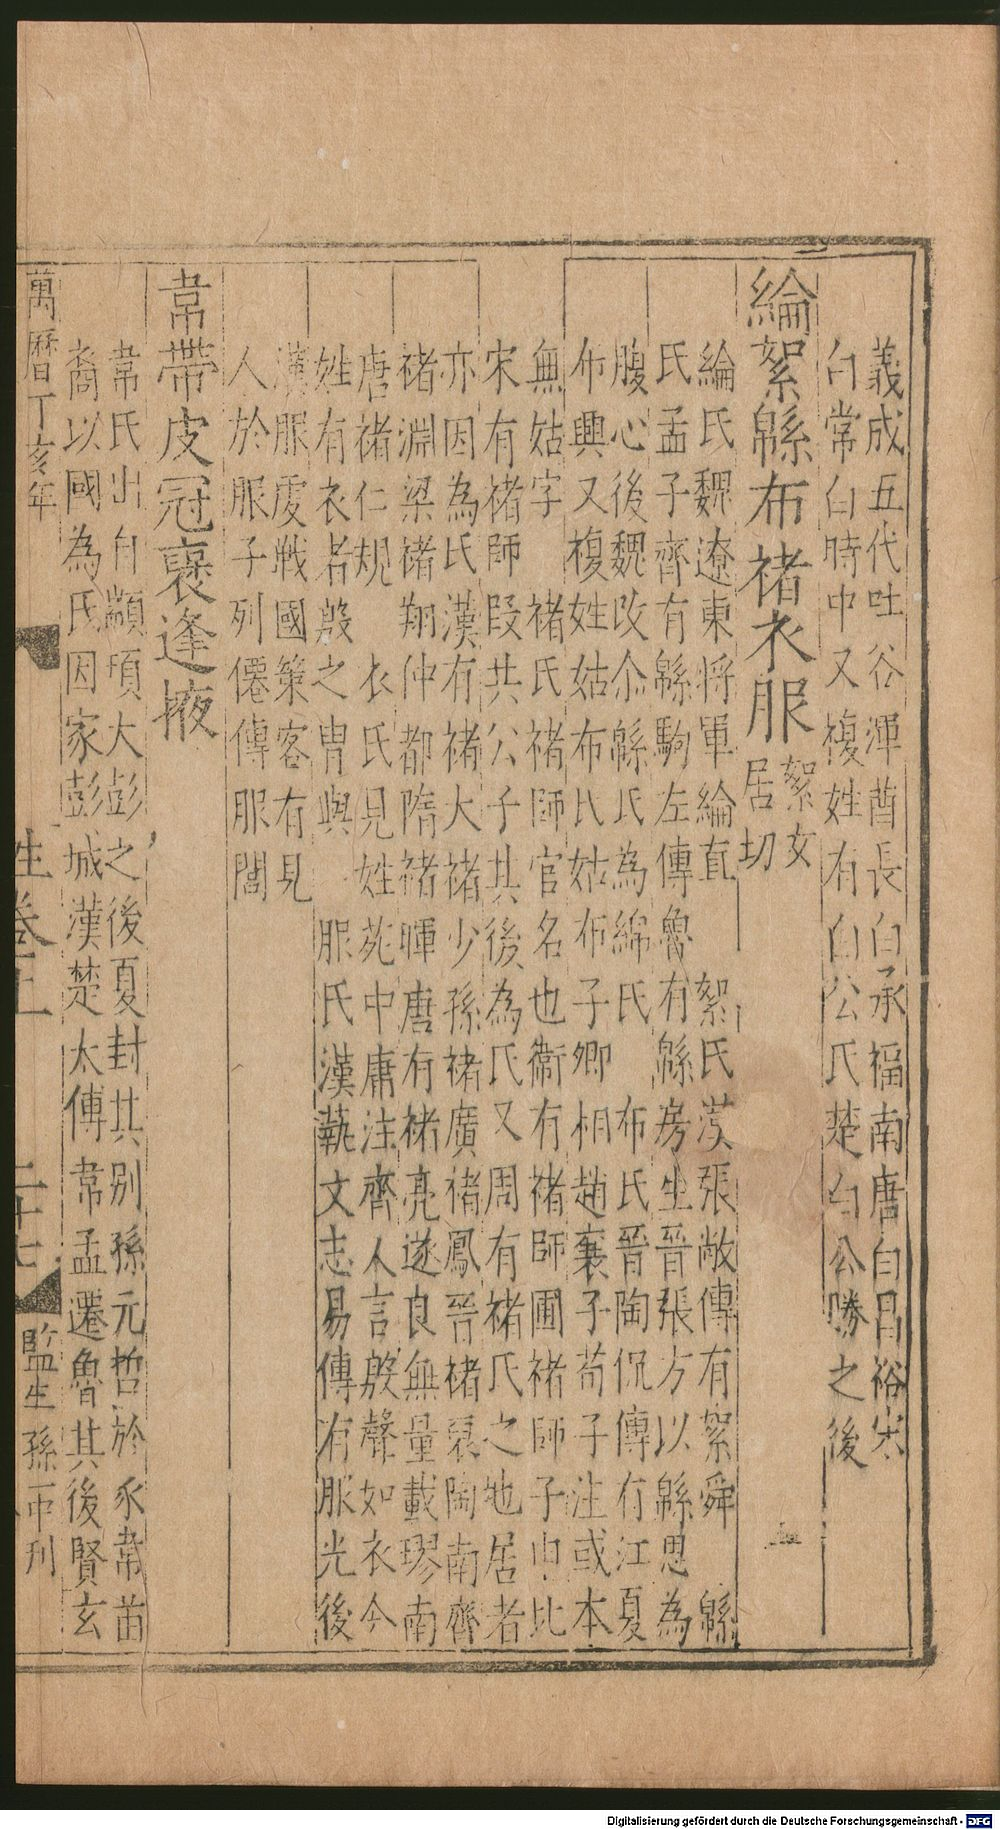 義成五代吐谷渾酋長白承福南唐白昌裕宋
白常白時中又複姓有白公氏楚白公勝之後
綸絮緜布褚衣服絮女居切
綸氏魏遼東将軍綸直 絮氏漢張敞傳有絮舜 緜
氏孟子齊有緜駒左傳魯有緜房生晉張方以緜思為
腹心後魏改尒緜氏為綿氏 布氏晉陶侃傳有江夏
布興又複姓姑布氏姑布子卿相趙襄子荀子注或本
無姑字 褚氏褚師官名也衞有褚師圃褚師子申比
宋有褚師叚共公子其後為氏又周有褚氏之地居者
亦因為氏漢有褚大褚少孫褚廣褚鳳晉褚裒陶南齊
褚淵梁褚翔仲都隋褚暉唐有褚亮遂良無量載璆南
唐褚仁規 衣氏見姓苑中庸注齊人言殷聲如衣今
姓有衣者殷之冑與 服氏漢蓺文志易傳有服光後
漢服虔戦國策客有見
人於服子列僊傳服閭
韋帶皮冠襃逢掖
韋氏出自顓頊大彭之後夏封其别孫元哲於豕韋苗
裔以國為氏因家彭城漢楚太傅韋孟遷魯其後賢玄
萬曆丁亥年
姓卷上
二十七
監生孫一中刊
Digitalisierung gefördert durch die Deutsche Forschungsgemeinschaft - DFG